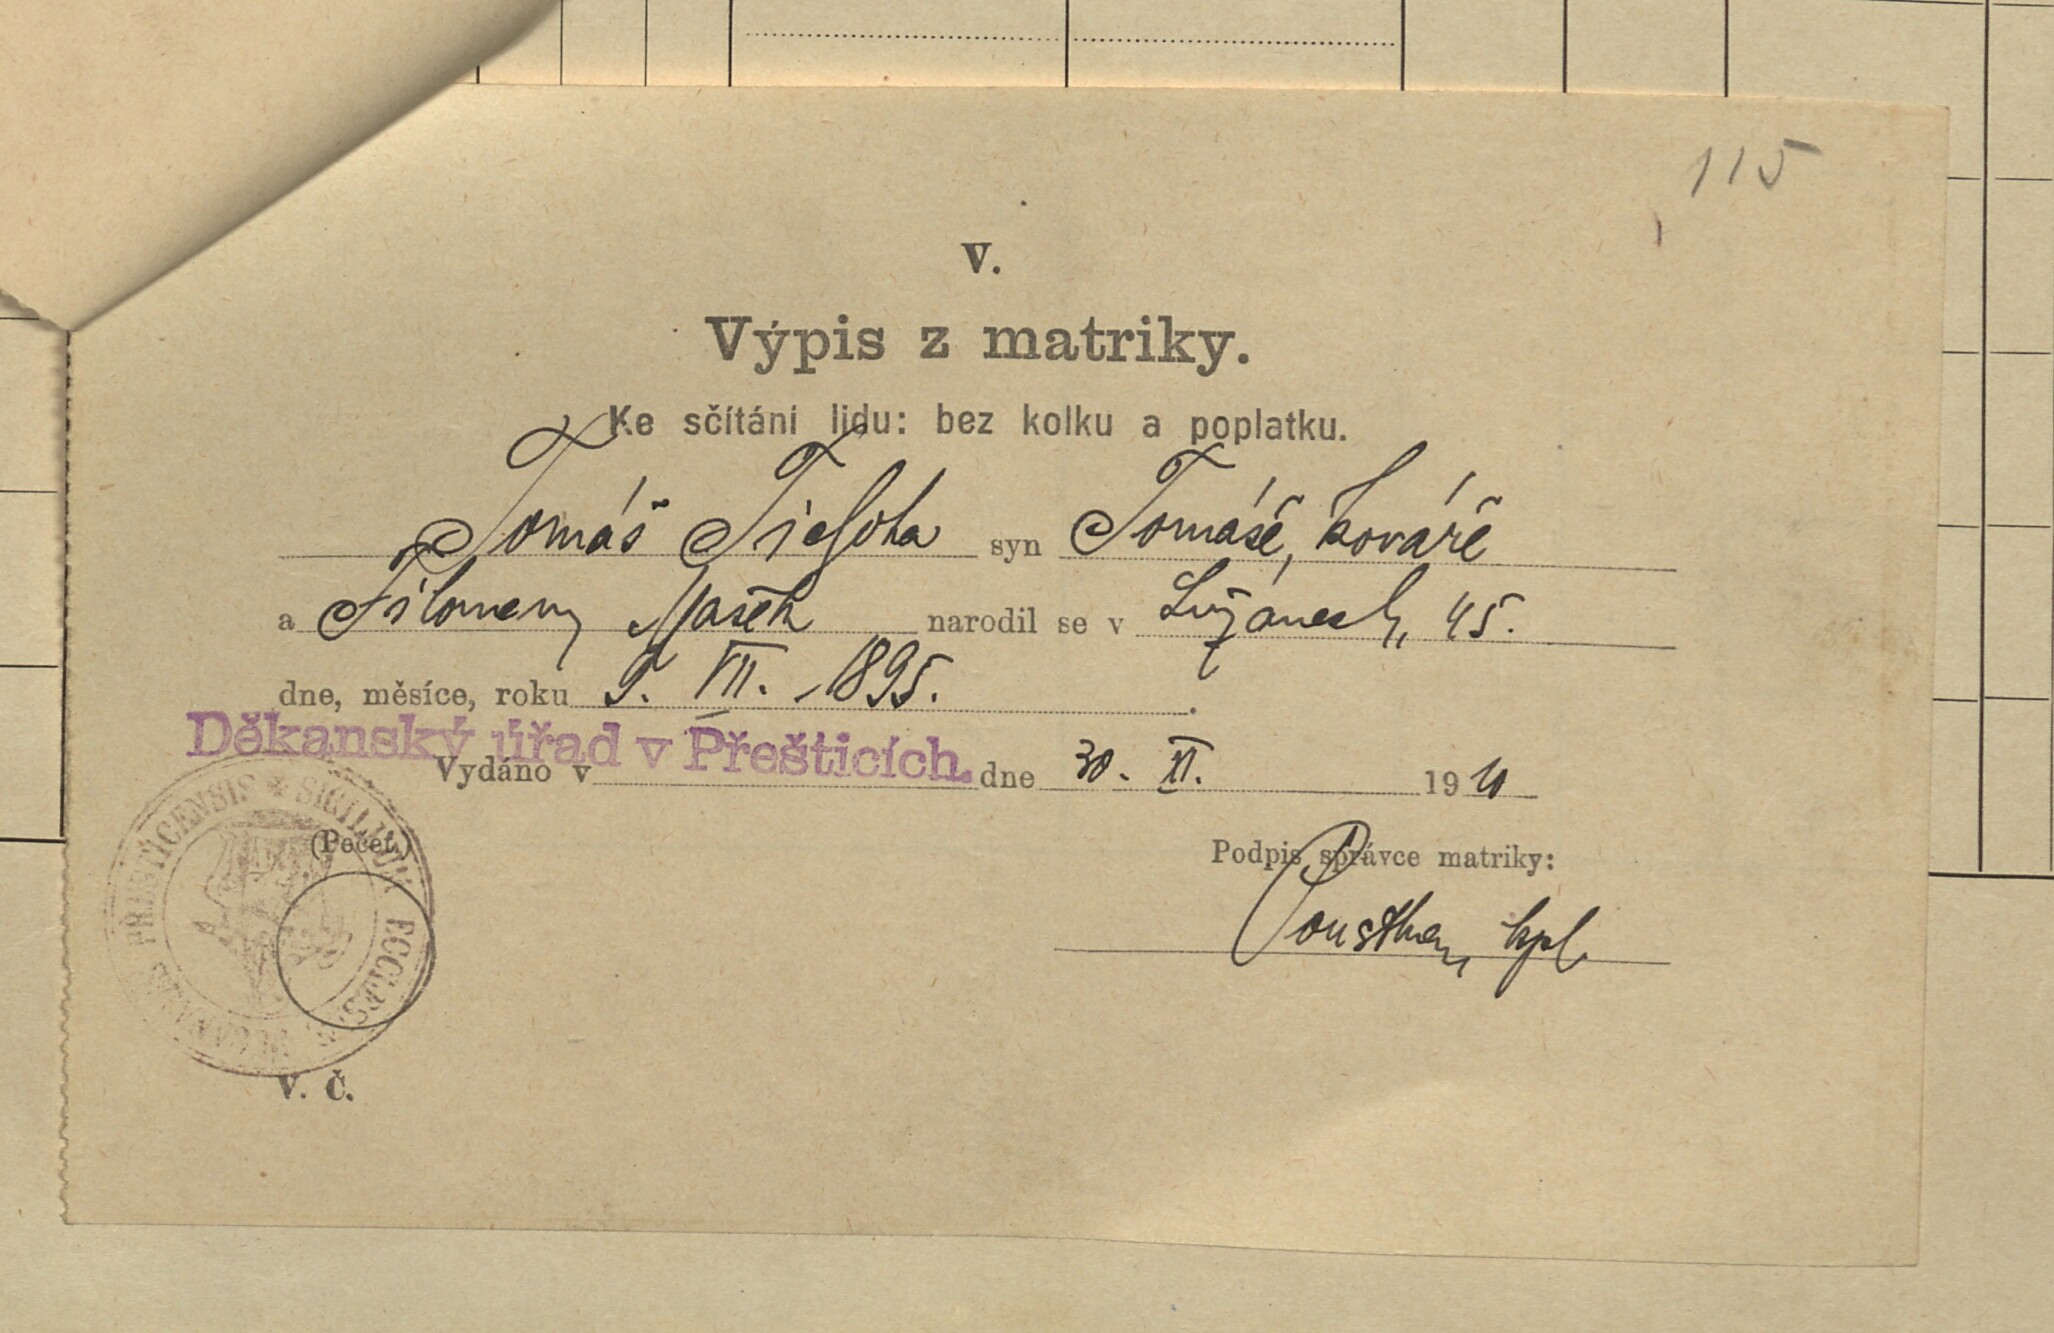 115
V.
Výpis z matriky.
Ke sčítání lidu: bez kolku a poplatku.
Tomáš syn Tomáše, kováře
a Filomeny Mašek narodil se v Lužanech, 45.
dne, měsíce, roku 9. VII. 1895.
Děkanský úřad v Přešticích.
Vydáno v dne 30. XI. 1910
(Pečeť.)
Podpis správce matriky:
kpl
V. Č.